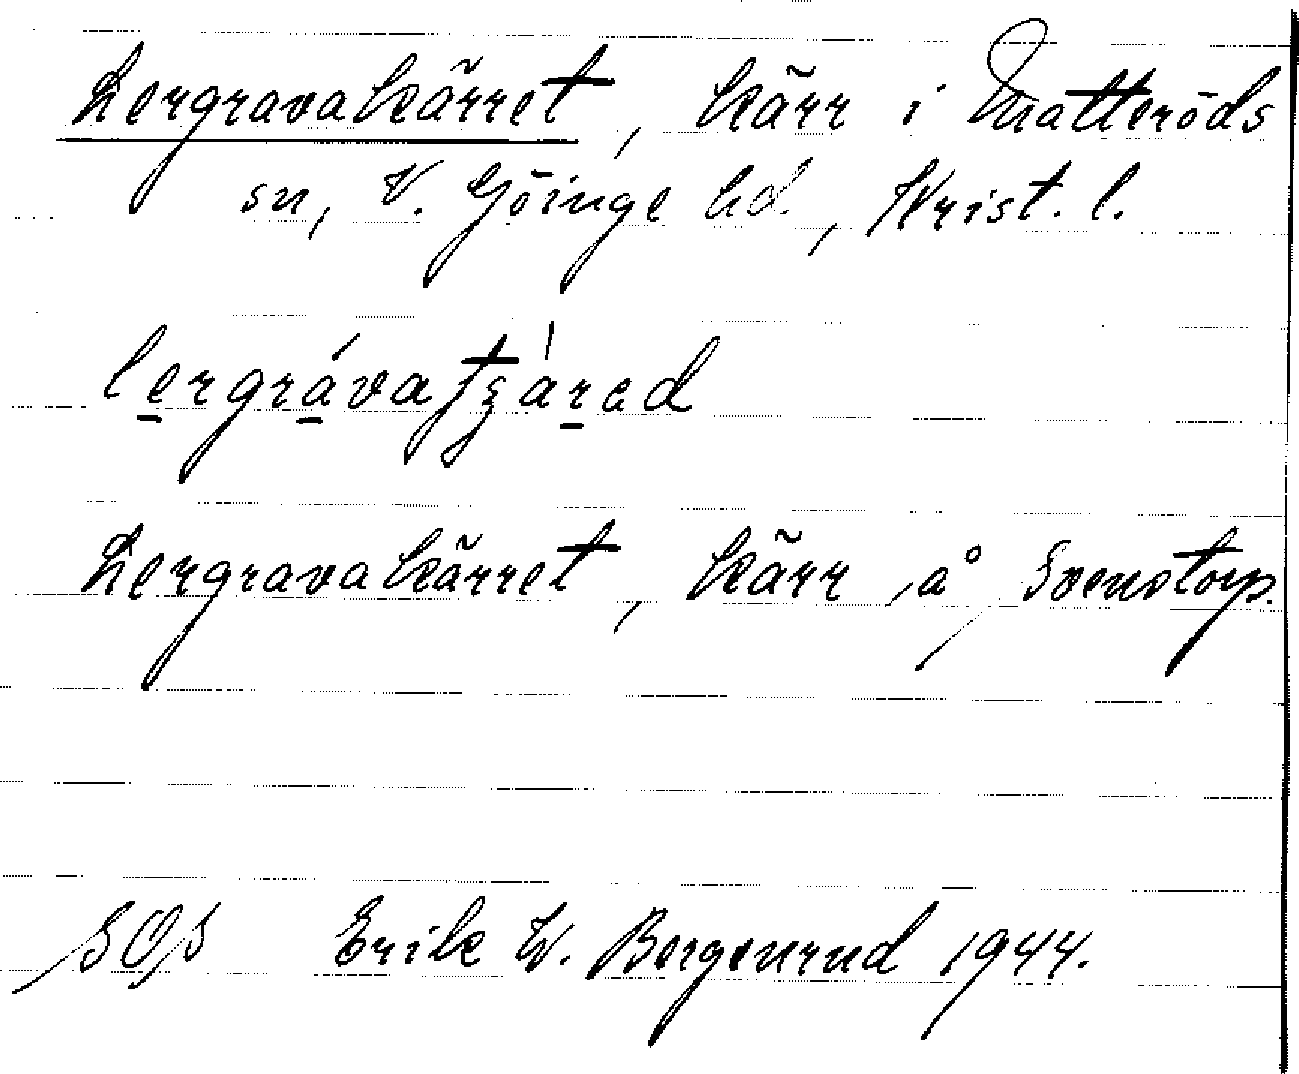 Lergravakärret, kärr i Matteröds
sn, V. Göinge hd., Krist. l.
Lergravakärret, kärr å Svenstorp.
SOS Erik W. Bergenrud 1944.